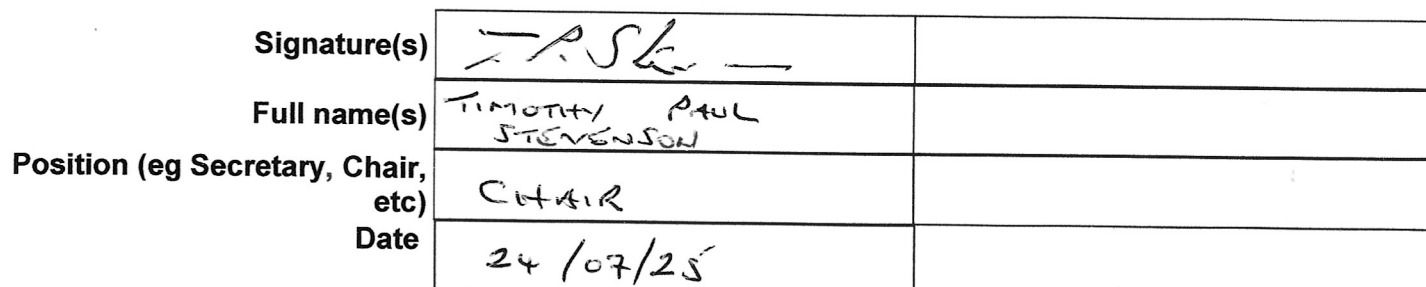 Signature(s)
Full name(s) TIMOTHY PAUL
STEVENSON
Position (eg Secretary, Chair,
etc) CHAIR
Date 24/07/25